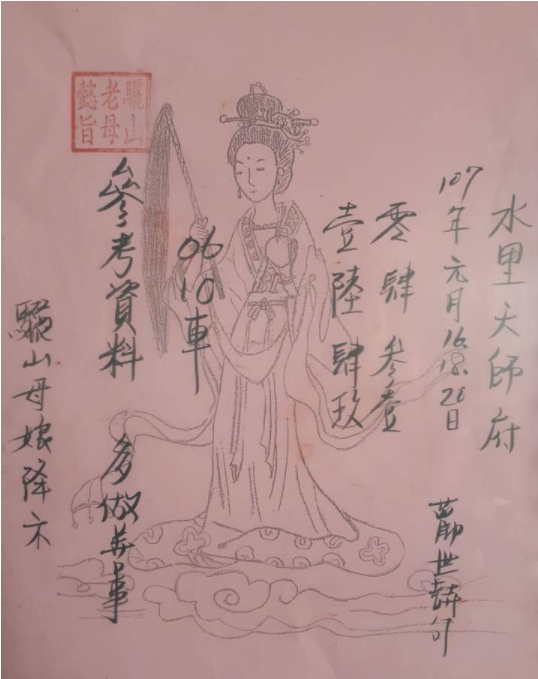 水里天師府
107年元月16.18.20日
勸世詩句
零肆 參壹
壹陸 肆玖
06
10車
參考資料 多做善事
驪山
老母
懿旨
驪山母娘降示